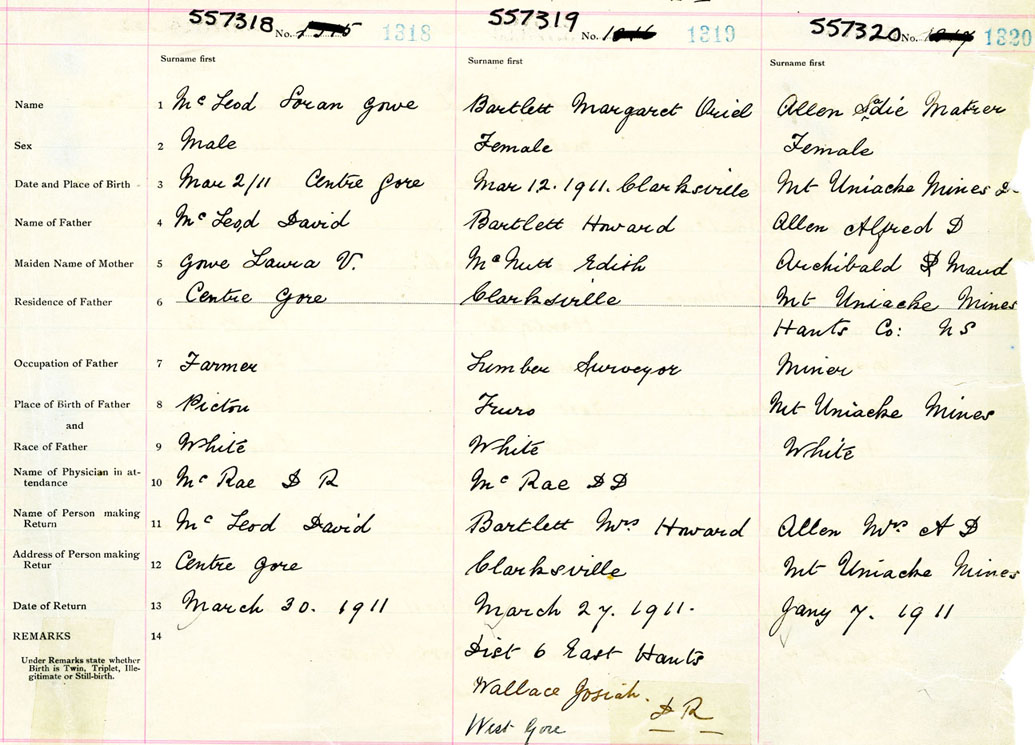 557318 No. 1318 557319 No. 1319 557320 No. 1320
Surname first Surname first Surname first
Name 1 Mc Leod Loran Gowe Bartlett Margaret Oriel Allen Sadie
Sex 2 Male Female Female
Date and Place of Birth 3 Mar 2/11 Centre Gore Mar 12. 1911. Clarksville Mt Uniacke Mines
Name of Father 4 Mc Leod David Bartlett Howard Allen Alfred D
Maiden Name of Mother 5 Gowe Laura V. Mc Nutt Edith Archibald Maud
Residence of Father 6 Centre Gore Clarksville Mt Uniacke Mines
Hants Co: NS
Occupation of Father 7 Farmer Lumber Surveyor Miner
Place of Birth of Father 8 Pictou Truro Mt Uniacke Mines
and
Race of Father 9 White White White
Name of Physician in at-
tendance 10 Mc Rae D R Mc Rae D D
Name of Person making
Return 11 Mc Leod David Bartlett Mrs Howard Allen Mrs A D
Address of Person making
Retur 12 Centre Gore Clarksville Mt Uniacke Mines
Date of Return 13 March 30. 1911 March 27. 1911. Jany 7. 1911
REMARKS 14
Under Remarks state whether
Birth is Twin, Triplet, Ille-
gitimate or Still-birth.
Dist 6 East Hants
Wallace Josiah.
D R
West Gore